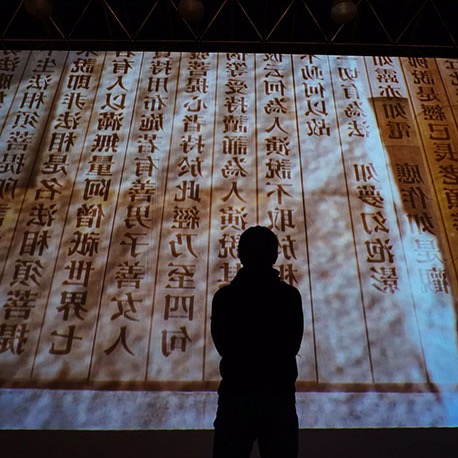 佛說是經已長老須菩
如露亦如電　應作如是觀
一切有為法　如夢幻泡影
不動何以故
云何為人演說不取於相
等受持讀誦為人演說
菩提心者持於此經乃至四句
持用布施若有善男子善女人
若有人以滿無量阿僧祇世界七
說即非法相是名法相須菩提
生法相須菩提所